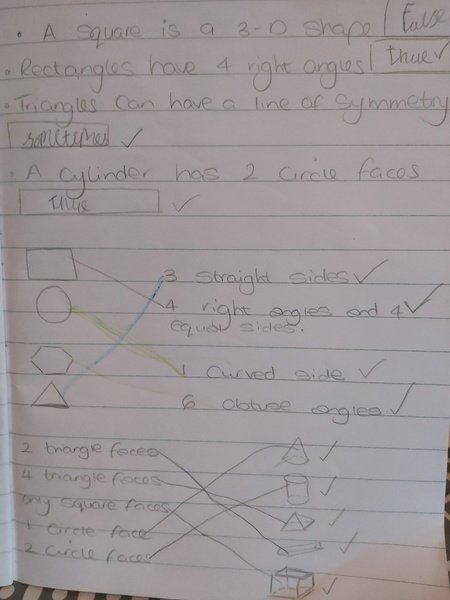 • A square is a 3-D shape False
• Rectangles have 4 right angles true ✓
• Triangles can have a line of symmetry
sometimes ✓
• A cylinder has 2 circle faces
true ✓
3 straight sides ✓
4 right angles and 4 ✓
equal sides.
1 curved side ✓
6 obtuse angles. ✓
2 triangle faces
4 triangle faces
only square faces
1 circle face
2 circle faces